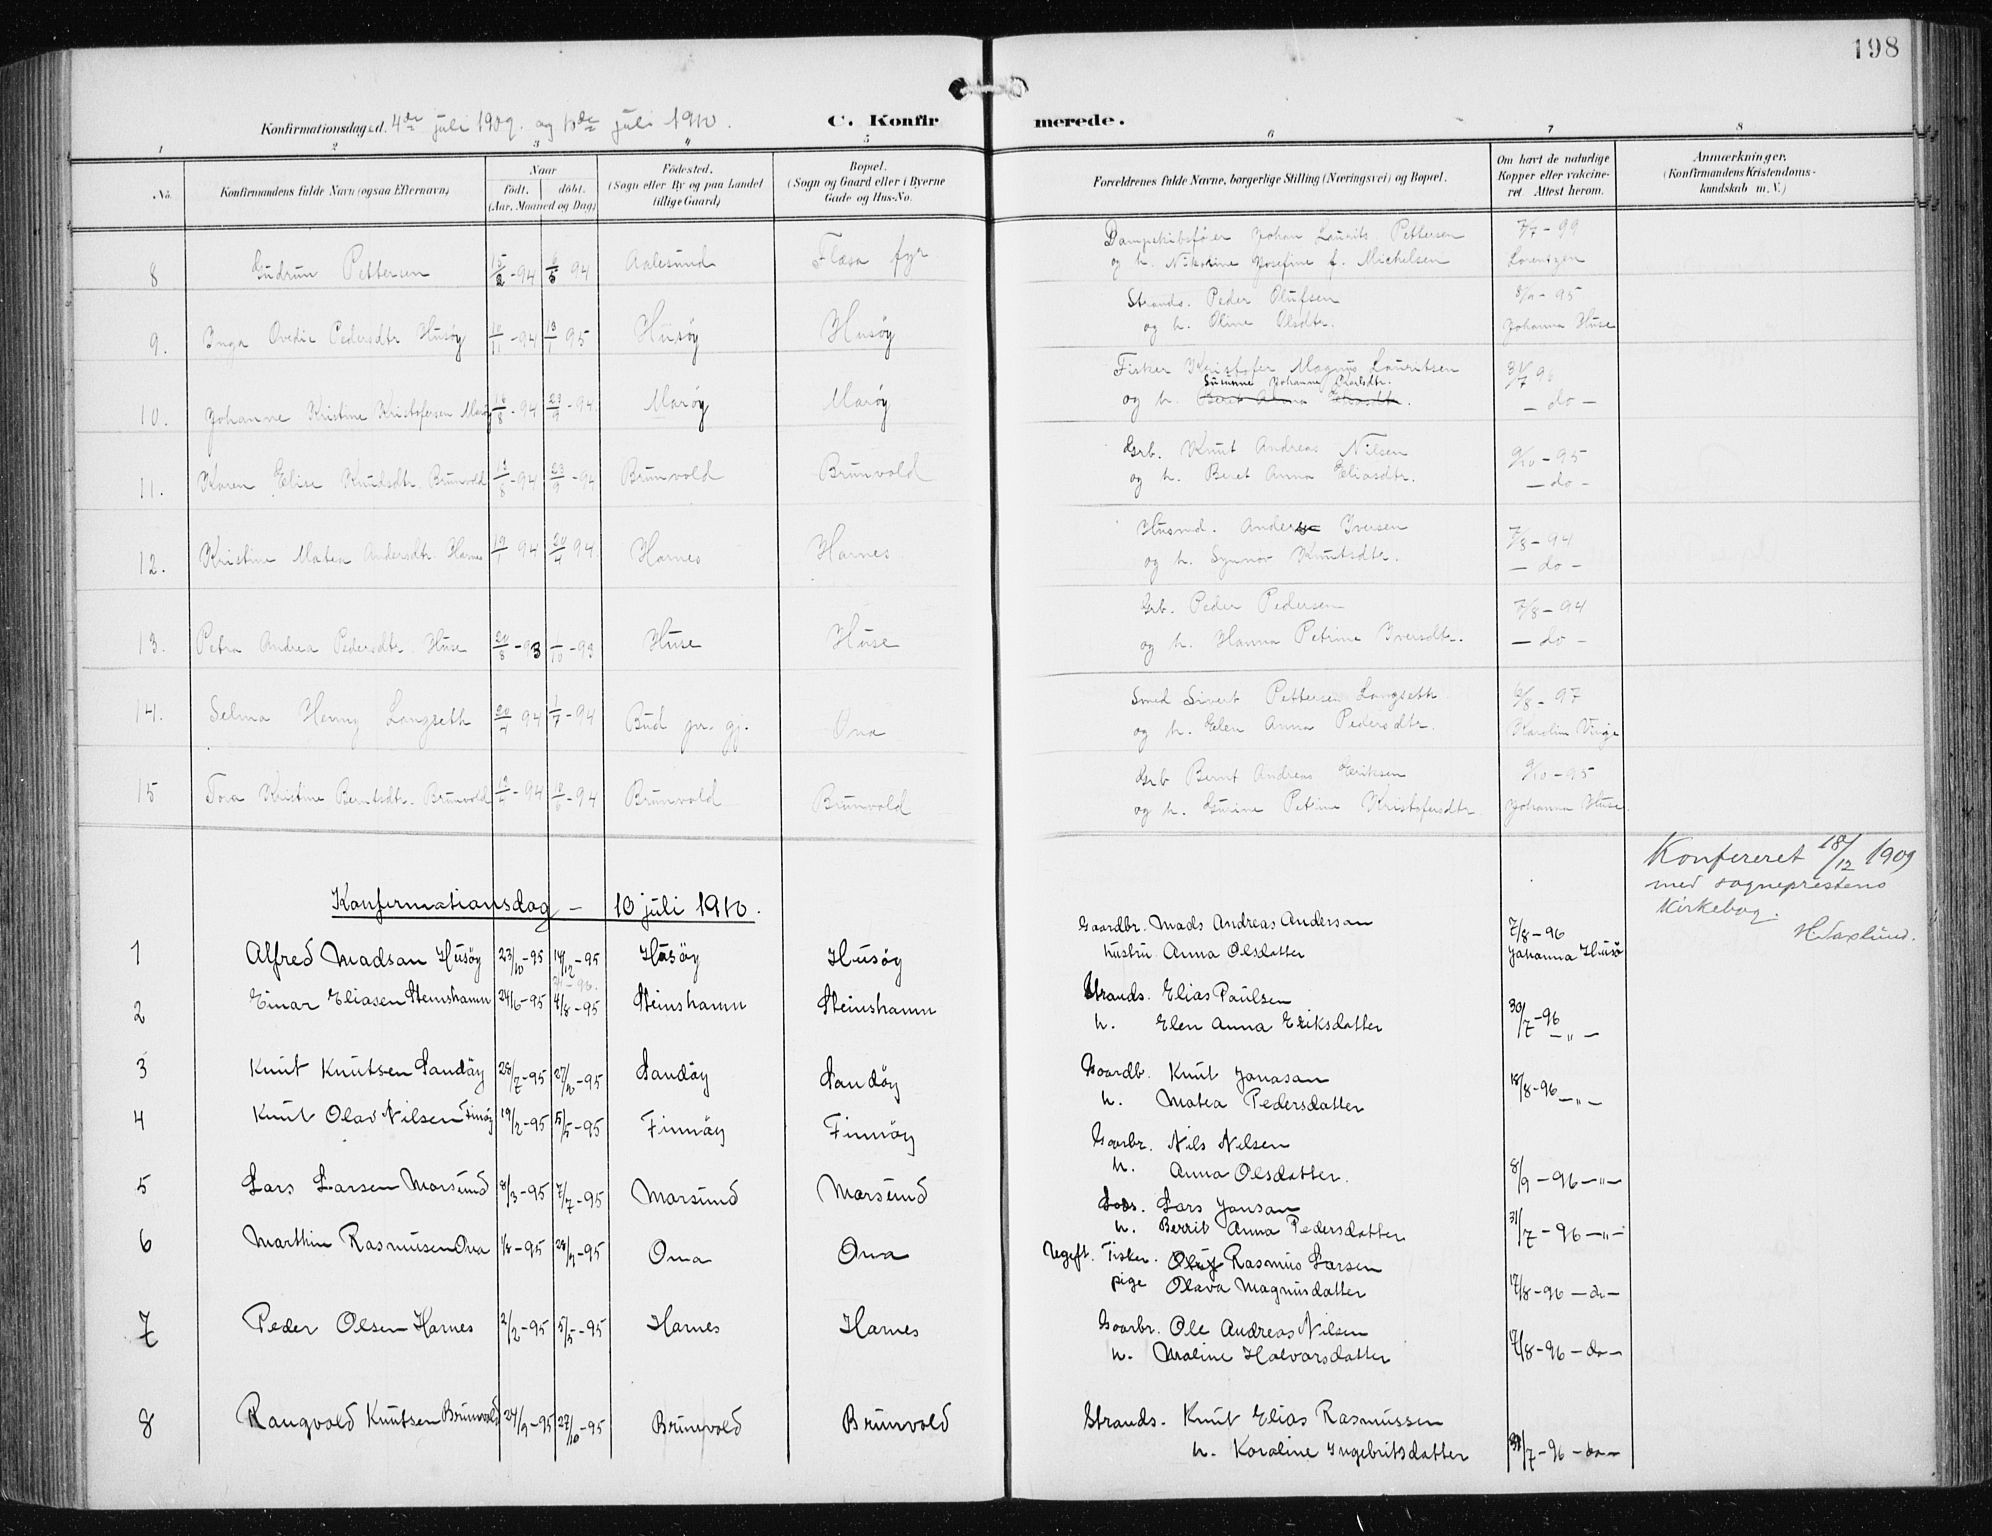 198
Konfirmationsdag d. 4de juli 1909. og 10de juli 1910.
C. Konfirmerede.
1 2 3 4 5 6 7 8
No. Konfirmandens fulde Navn (ogsaa Efternavn) Naar født. døbt. (Aar, Maaned og Dag) Fødested. (Sogn eller By og paa Landet tillige Gaard) Bopæl. (Sogn og Gaard eller i Byerne Gade og Hus-No. Forældrenes fulde Navne, borgerlige Stilling (Næringsvei) og Bopæl. Om havt de naturlige Kopper eller vakcineret. Attest herom. Anmærkninger. (Konfirmandens Kristendomskundskab m. V.)
8 Gudrun Pettersen 15/2-94 6/5 94 Aalesund Flæsa fyr Dampskibsfører Johan Laurits Pettersen 7/7-99
og h. Nikoline Josefine f. Michelsen Lorentzen
9. Inga Ovedie Pedersdtr Husøy 10/11-94 13/1 95 Husøy Husøy Strands. Peder Olufsen 8/9-95
og h. Oline Olsdtr. Johanna Huse
10. Johanne Kristine Kristofersen Marøy 16/8-94 23/9-94. Marøy Marøy Fisker Kristofer Magnus Lauritsen 31/7 96
Susanne Johanne Carlsdtr.
og h. — do —
11. Karen Elise Knudsdtr. Brunvold -94 23/9-94 Brunvold Brunvold Grb. Knut Andreas Nilsen 9/10-95
og h. Beret Anna Eliasdtr. — do —
12. Kristine Matea Andersdtr. Harnes 19/1 94 20/4 94 Harnes Harnes Husmd. Anders Iversen 7/8-94
og h. Synnøv Knutsdtr. — do —
13. Petra Andrea Pedersdtr. Huse 20/8-93 1/10-93 Huse Huse Grb. Peder Pedersen 7/8-94
og h. Hanna Petrine Iversdtr. — do —
14. Selma Henny Langseth 20/4 94 1/7-94 Bud pr. gj. Ona Smed Sivert Pettersen Langseth 6/8-97
og h. Elen Anna Pedersdtr. Karolin Vinje
15 Tora Kristine Berntsdtr. Brunvold -94 -94 Brunvold Brunvold Grb Bernt Andreas Eriksen 9/10-95
og h. Gurine Petrine Kristofersdtr Johanna Huse
Konfereret 18/12 1909
med sogneprestens
Kirkebog.
H. Saxlund.
Konfirmationsdag – 10 juli 1910.
1 Alfred Madsan Husöy 23/10-95 14/12-95 Husöy Husöy Gaardbr. Mads Andreas Andersan 7/8-96
hustru Anna Olsdatter Johanna Husö
2 Einar Eliasen Steinshamn 24/6-95 4/8-95 Steinshamn Steinshamn Strands. Elias Paulsen 30/7-96
h. Elen Anna Eriksdatter — „ —
3 Knut Knutsen Sandöy 28/7-95 27/10-95 Sandöy Sandöy Gaardb. Knut Jonasan 18/8-96 — „ —
h. Matea Pedersdatter
4 Knut Olav Nilsen Finöy 19/2-95 5/5-95 Finnöy Finnöy Gaarbr. Nils Nilsen
h. Anna Olsdatter. 8/9-96 — „ —
5 Lars Larsen Marsund 8/3-95 7/7-95 Marsund Marsund Lars Jonsan 31/7-96 — „ —
h. Berrit Anna Pedersdatter
6 Marthin Rasmusen Ona 1/8-95 28/9-95 Ona Ona Ugift. Fisker. Rasmus Larsen
pige Olava Magnusdatter 17/8-96 — do —
7 Peder Olsen Harnes 2/2-95 5/5-95 Harnes Harnes Gaarbr. Ole Andreas Nilsen
h. Maline Halvorsdatter 17/8-96 — do —
8 Rangvald Knutsen Brunvold 24/9-95 27/10-95 Brunvold Brunvold Strands. Knut Elias Rasmussen
h. Karoline Ingebritsdatter 31/7-96 — do —